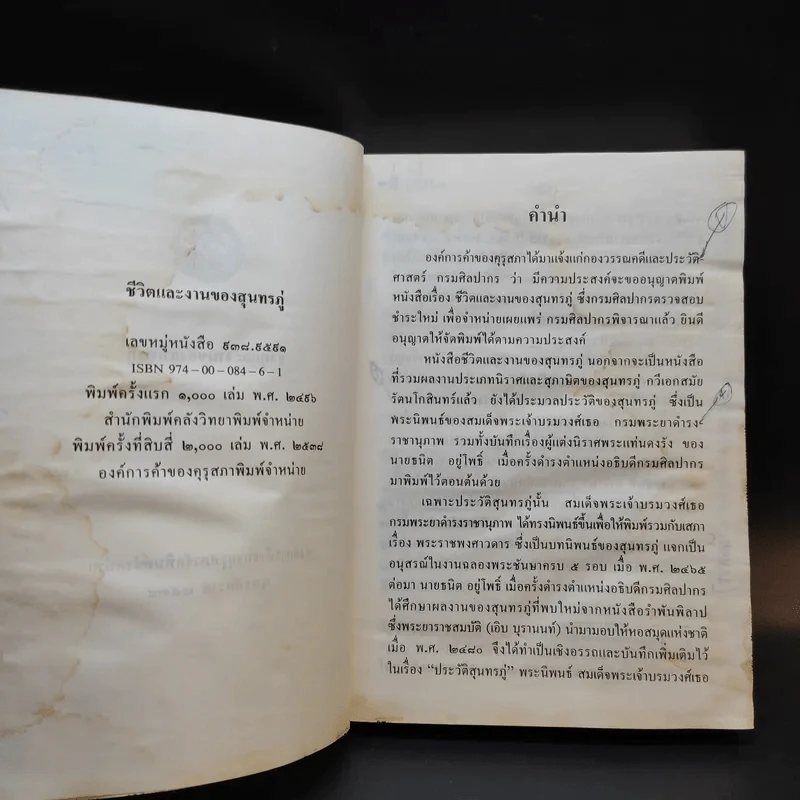 ชีวิตและงานของสุนทรภู่
เลขหมู่หนังสือ ๙๓๘.๙๕๙๑
ISBN 974-00-084-6-1
พิมพ์ครั้งแรก ๑,๐๐๐ เล่ม พ.ศ. ๒๔๙๖
สำนักพิมพ์คลังวิทยาพิมพ์จำหน่าย
พิมพ์ครั้งที่สิบสี่ ๒,๐๐๐ เล่ม พ.ศ. ๒๕๓๘
องค์การค้าของคุรุสภาพิมพ์จำหน่าย
คำนำ
องค์การค้าของคุรุสภาได้มาแจ้งแก่กองวรรณคดีและประวัติ-
ศาสตร์ กรมศิลปากร ว่า มีความประสงค์จะขออนุญาตพิมพ์
หนังสือเรื่อง ชีวิตและงานของสุนทรภู่ ซึ่งกรมศิลปากรตรวจสอบ
ชำระใหม่ เพื่อจำหน่ายเผยแพร่ กรมศิลปากรพิจารณาแล้ว ยินดี
อนุญาตให้จัดพิมพ์ได้ตามความประสงค์
หนังสือชีวิตและงานของสุนทรภู่ นอกจากจะเป็นหนังสือ
ที่รวมผลงานประเภทนิราศและสุภาษิตของสุนทรภู่ กวีเอกสมัย
รัตนโกสินทร์แล้ว ยังได้ประมวลประวัติของสุนทรภู่ ซึ่งเป็น
พระนิพนธ์ของสมเด็จพระเจ้าบรมวงศ์เธอ กรมพระยาดำรง-
ราชานุภาพ รวมทั้งบันทึกเรื่องผู้แต่งนิราศพระแท่นดงรัง ของ
นายธนิต อยู่โพธิ์ เมื่อครั้งดำรงตำแหน่งอธิบดีกรมศิลปากร
มาพิมพ์ไว้ตอนต้นด้วย
เฉพาะประวัติสุนทรภู่นั้น สมเด็จพระเจ้าบรมวงศ์เธอ
กรมพระยาดำรงราชานุภาพ ได้ทรงนิพนธ์ขึ้นเพื่อให้พิมพ์รวมกับเสภา
เรื่อง พระราชพงศาวดาร ซึ่งเป็นบทนิพนธ์ของสุนทรภู่ แจกเป็น
อนุสรณ์ในงานฉลองพระชันษาครบ ๕ รอบ เมื่อ พ.ศ. ๒๔๖๕
ต่อมา นายธนิต อยู่โพธิ์ เมื่อครั้งดำรงตำแหน่งอธิบดีกรมศิลปากร
ได้ศึกษาผลงานของสุนทรภู่ที่พบใหม่จากหนังสือรำพันพิลาป
ซึ่งพระยาราชสมบัติ (เอิบ บุรานนท์) นำมามอบให้หอสมุดแห่งชาติ
เมื่อ พ.ศ. ๒๔๘๐ จึงได้ทำเป็นเชิงอรรถและบันทึกเพิ่มเติมไว้
ในเรื่อง "ประวัติสุนทรภู่" พระนิพนธ์ สมเด็จพระเจ้าบรมวงศ์เธอ